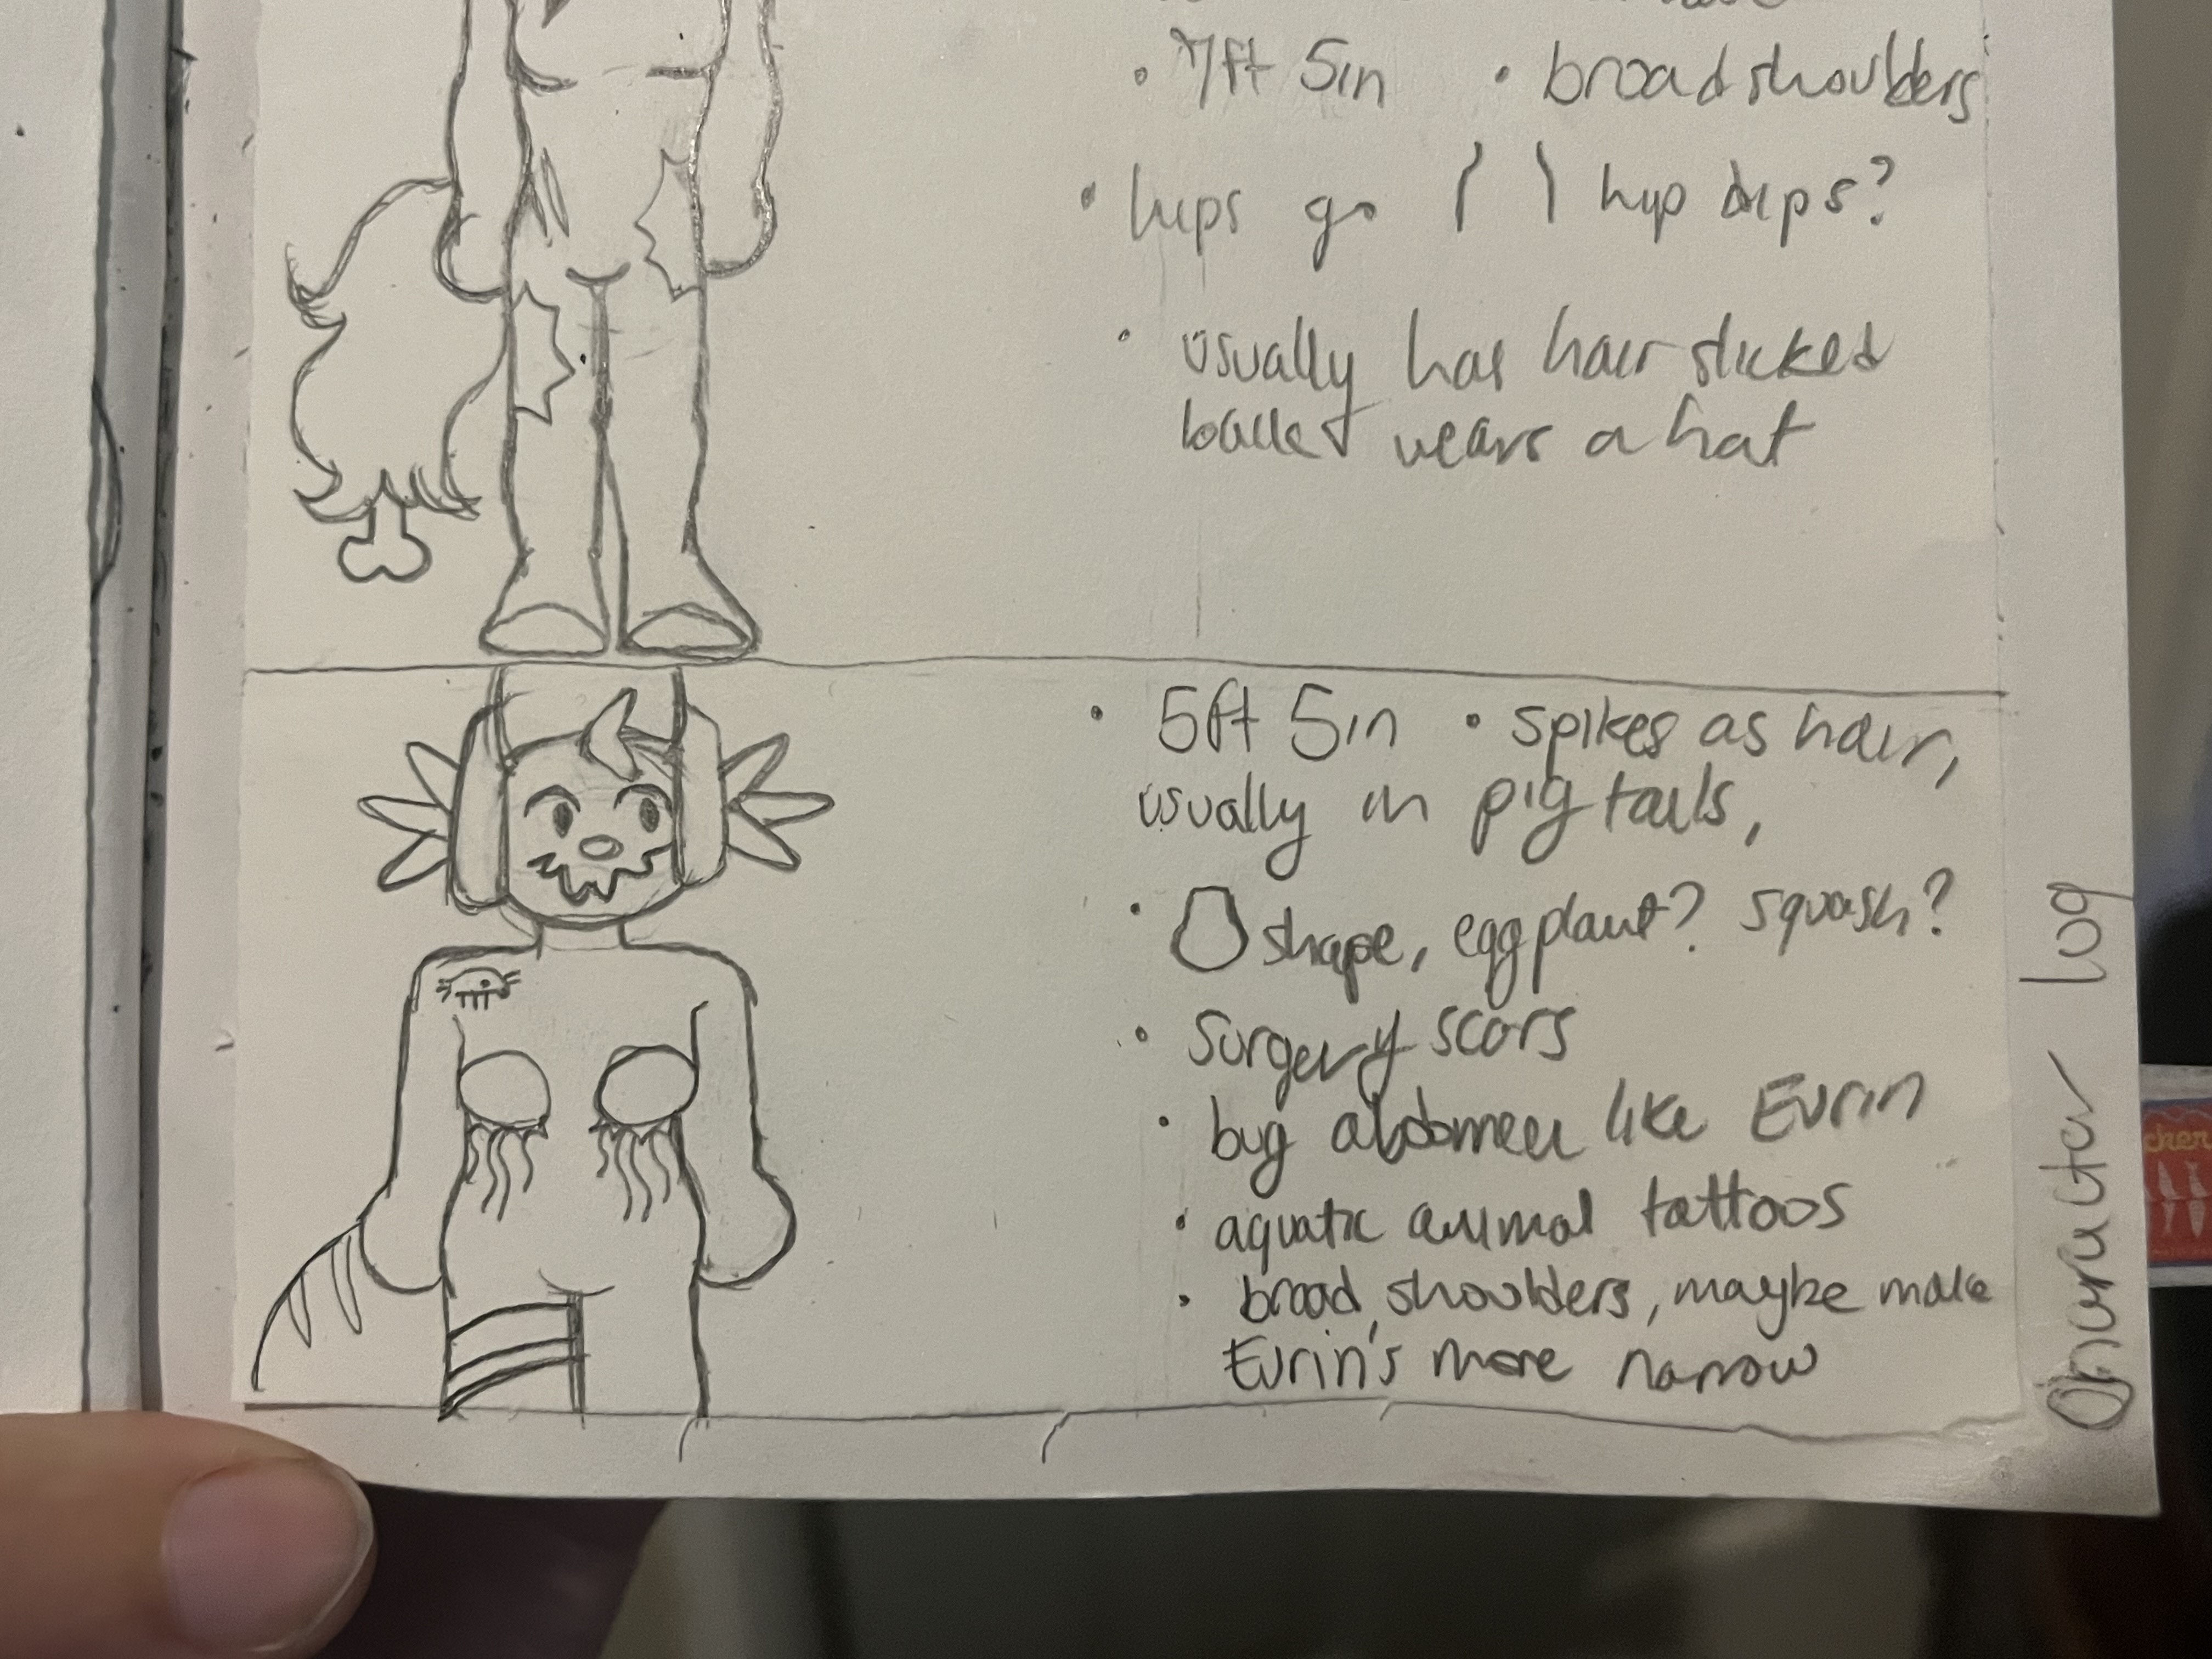 • 7ft 5in • broad shoulders
• hips go hip dips?
• usually has hair slicked
back + wears a hat
• 5ft 5in • spikes as hair,
usually in pig tails,
• shape, eggplant? squash?
• surgery scars
• bug abdomen like Eurin
• aquatic animal tattoos
• broad shoulders, maybe make
Eurin's more narrow